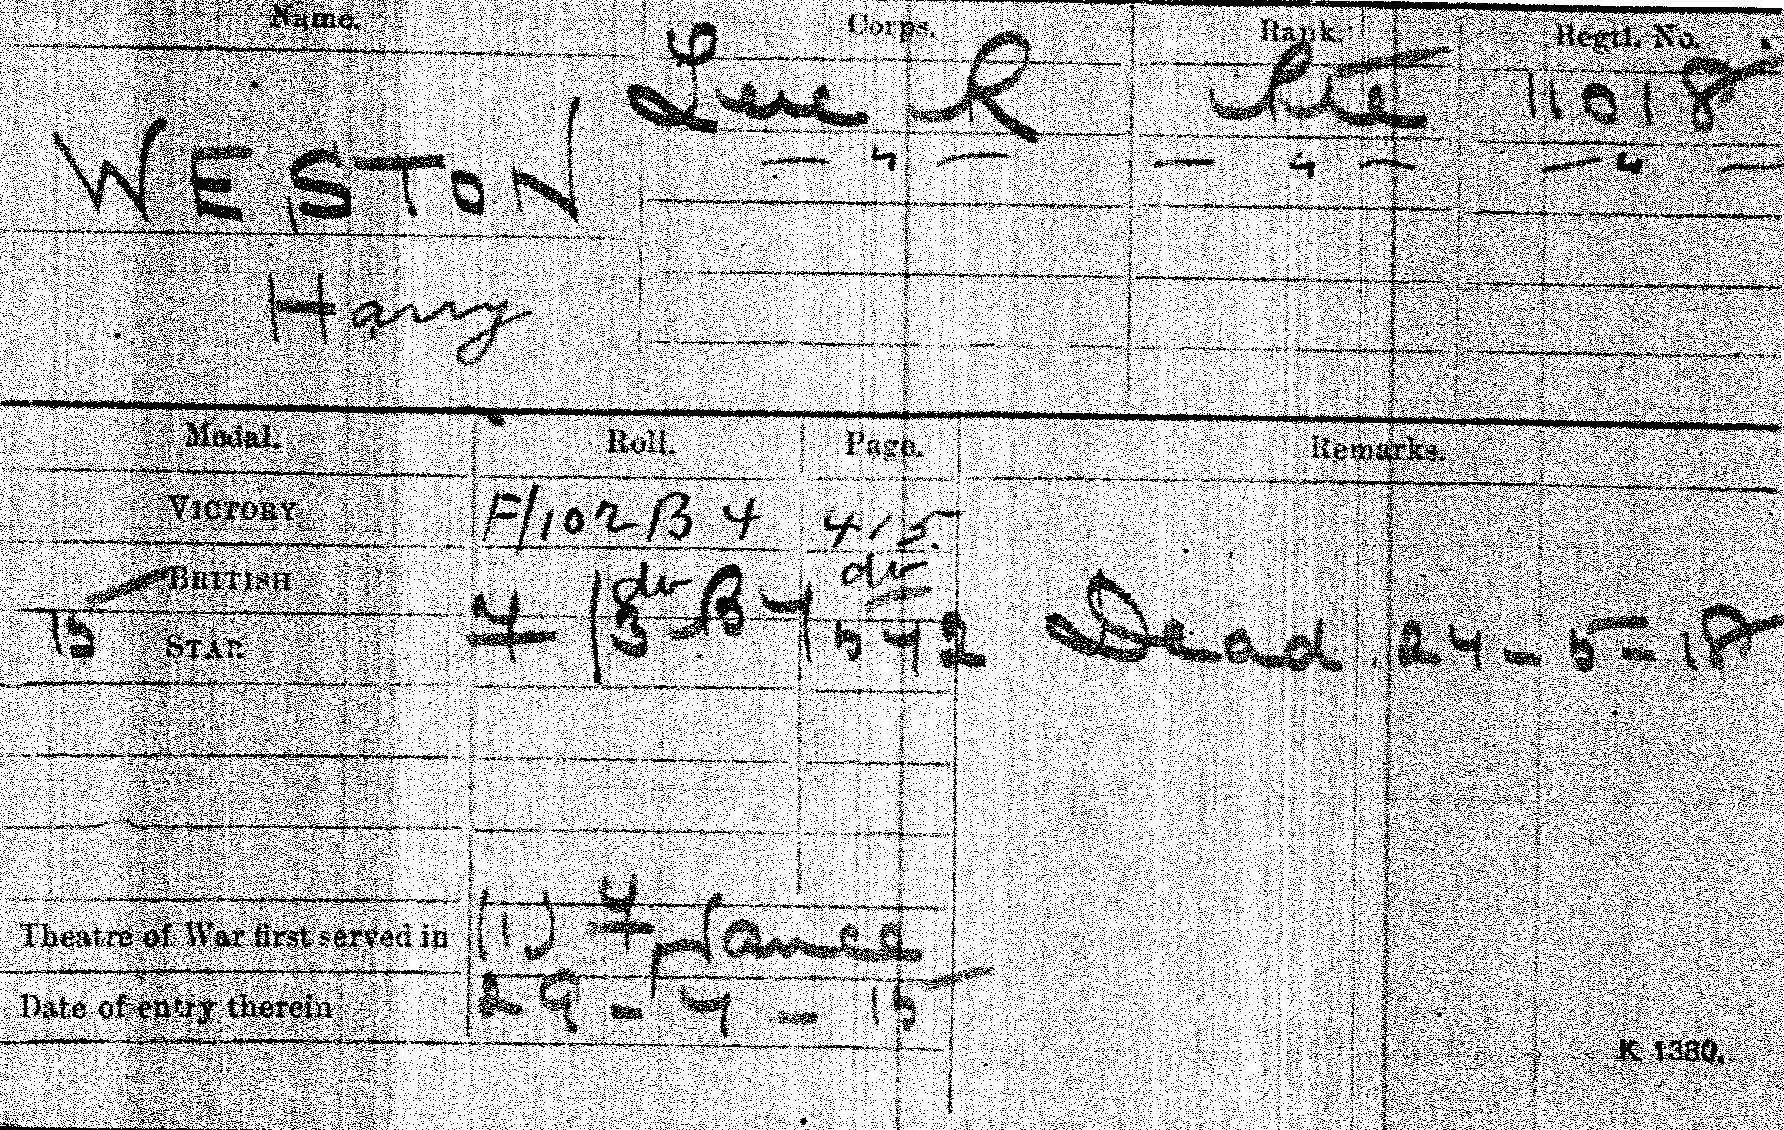 Name. Corps. Rank. Regtl. No.
Leic R Pte 11018
WESTON — " — — " — — " —
Harry
Medal. Roll. Page. Remarks.
VICTORY F/102 B 4 415.
BRITISH do do
15 STAR 4/3 B 4 542 Dead 24-5-18
Theatre of War first served in (1) France
Date of entry therein 29-4-15
K. 1380.